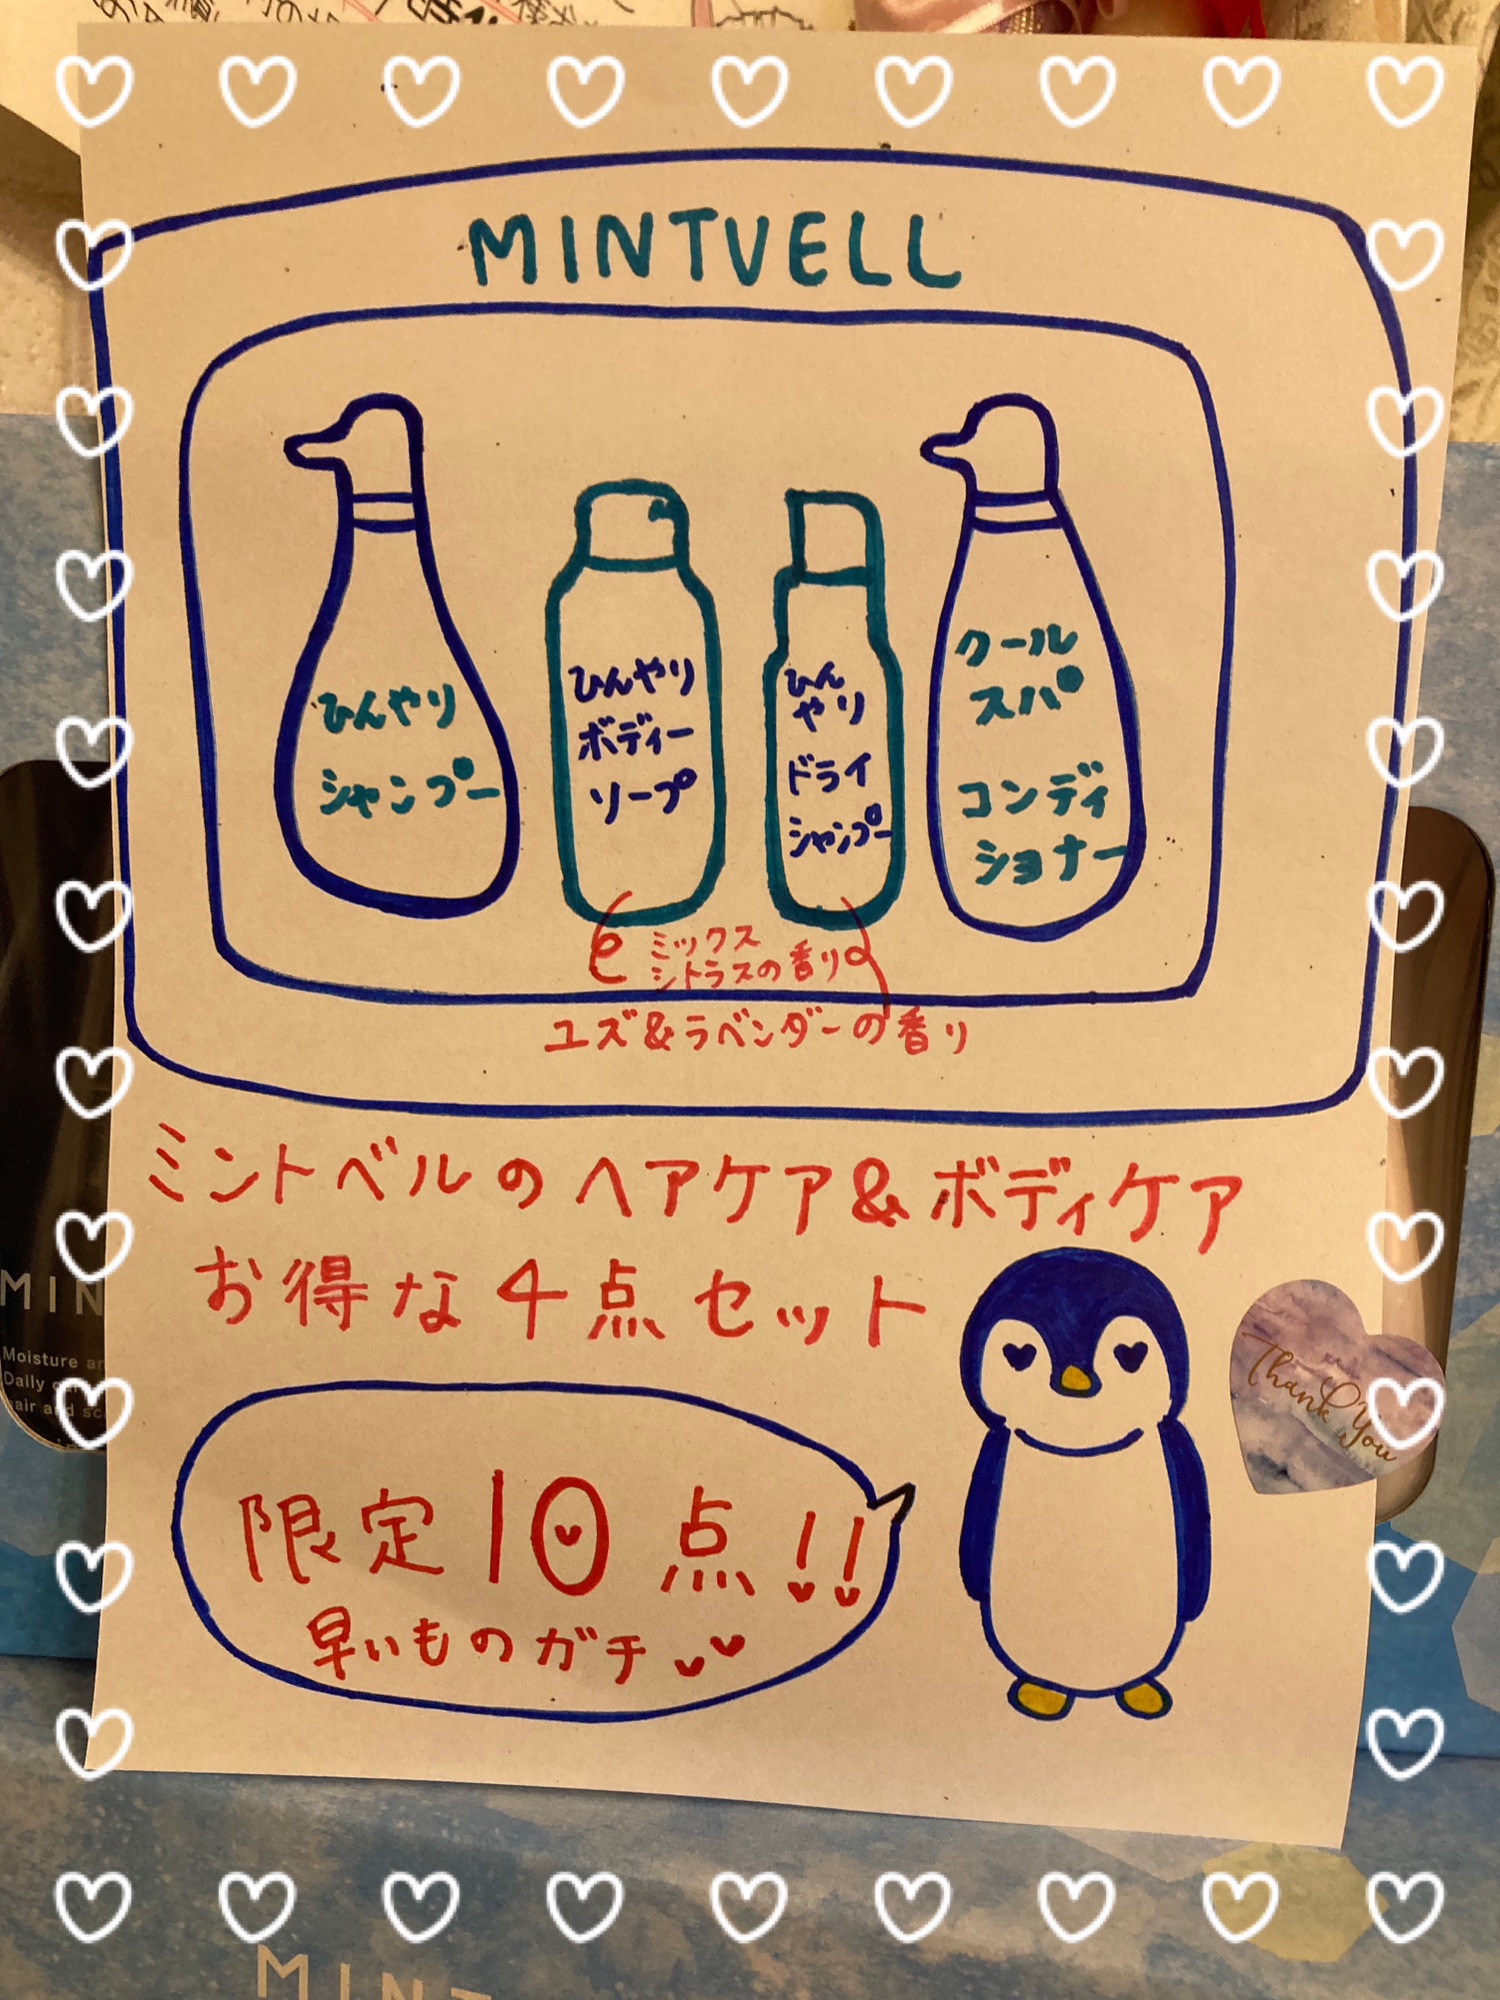 MINTVELL
ひんやり
シャンプー
ひんやり
ボディー
ソープ
ひん
やり
ドライ
シャンプー
クール
スパ
コンディ
ショナー
ミックス
シトラスの香り
ユズ&ラベンダーの香り
ミントベルのヘアケア&ボディケア
お得な4点セット
限定10点!!
早いものガチ
Thank You
MIN
Moisture an
Daily
air and sc
MINT